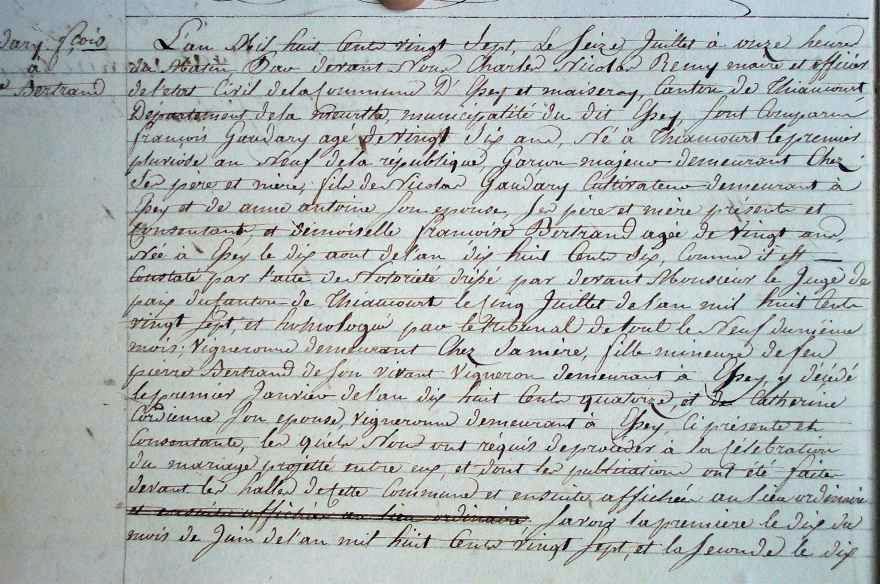 dary fcois
à
Bertrand
L'an Mil huit Cents vingt Sept, Le Seize Juillet à onze heures
du Matin Par devant Nous Charles Nicolas Remy maire et officier
de l'etat Civil de la Commune D'Essey et maizeray, Canton de Thiaucourt
Département de la meurthe, municipalité du dit Essey, sont Comparus
françois Gaudary agé de vingt Six ans, Né à Thiaucourt le premier
pluviose an Neuf de la république Garson majeur demeurant Chez
Ses pere et mère, fils de Nicolas Gaudary Cultivateur demeurant à
Essey et de anne antoine son epouse, Ses père et mère présents et
Consentant, et demoiselle françoise Bertrand agée de vingt ans,
Née à Essey le dix aout de l'an dix huit Cents dix, Comme il est
Constaté par l'acte de Notoriété drèsé par devant Monsieur le Juge de
paix du Canton de Thiaucourt le Cinq Juillet de l'an mil huit Cents
vingt Sept, et homologué par le tribunal de toul le Neuf du même
mois; Vigneronne demeurant Chez Sa mère, fille mineure de feu
pierre Bertrand de son vivant Vigneron demeurant à Essey, y décédé
le premier Janvier de l'an dix huit Cents quatorze, et de Catherine
Cordienne son epouse, vigneronne demeurant à Essey, Ci présente et
Consentante, les quels Nous ont réquis de procéder à la Célébration
du mariage projetté entre eux, et dont les publications ont été faite
devant les halles de Cette Commune et ensuite affichée au lieu ordinaire
et ensuite affichée au lieu ordinaire, Savoir la premiere le dix du
mois de Juin de l'an mil huit Cents vingt Sept, et la Seconde le dix